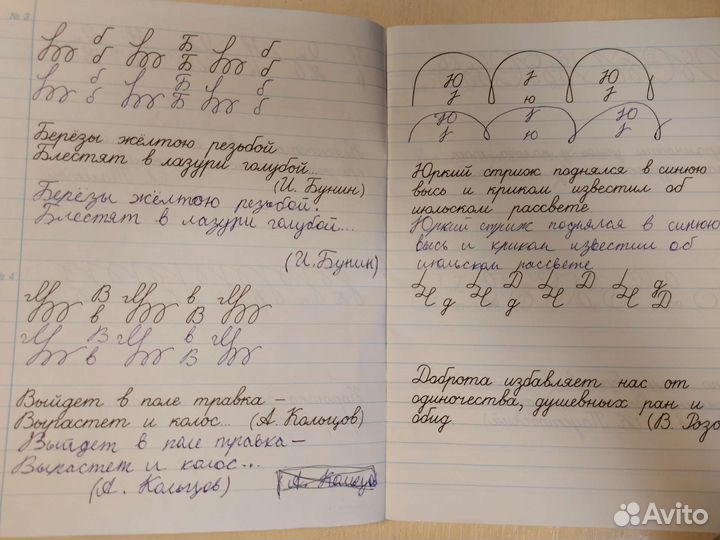 № 3
б б Б Б б б
б б Б Б б б
Берёзы жёлтою резьбой
Блестят в лазури голубой...
(И. Бунин)
Берёзы жёлтою резьбой.
Блестят в лазури голубой...
(И. Бунин)
№ 4
В в в В
В в в В
Выйдет в поле травка –
Вырастет и колос... (А. Кольцов)
Выйдет в поле травка –
Вырастет и колос...
(А. Кольцов)
Ю Ю
ю
Ю Ю
ю
Юркий стриж поднялся в синюю
высь и криком известил об
июльском рассвете.
Юркий стриж поднялся в синюю
высь и криком известил об
июльском рассвете
Д Д д
д д Д
Доброта избавляет нас от
одиночества, душевных ран и
обид. (В. Розо
Avito